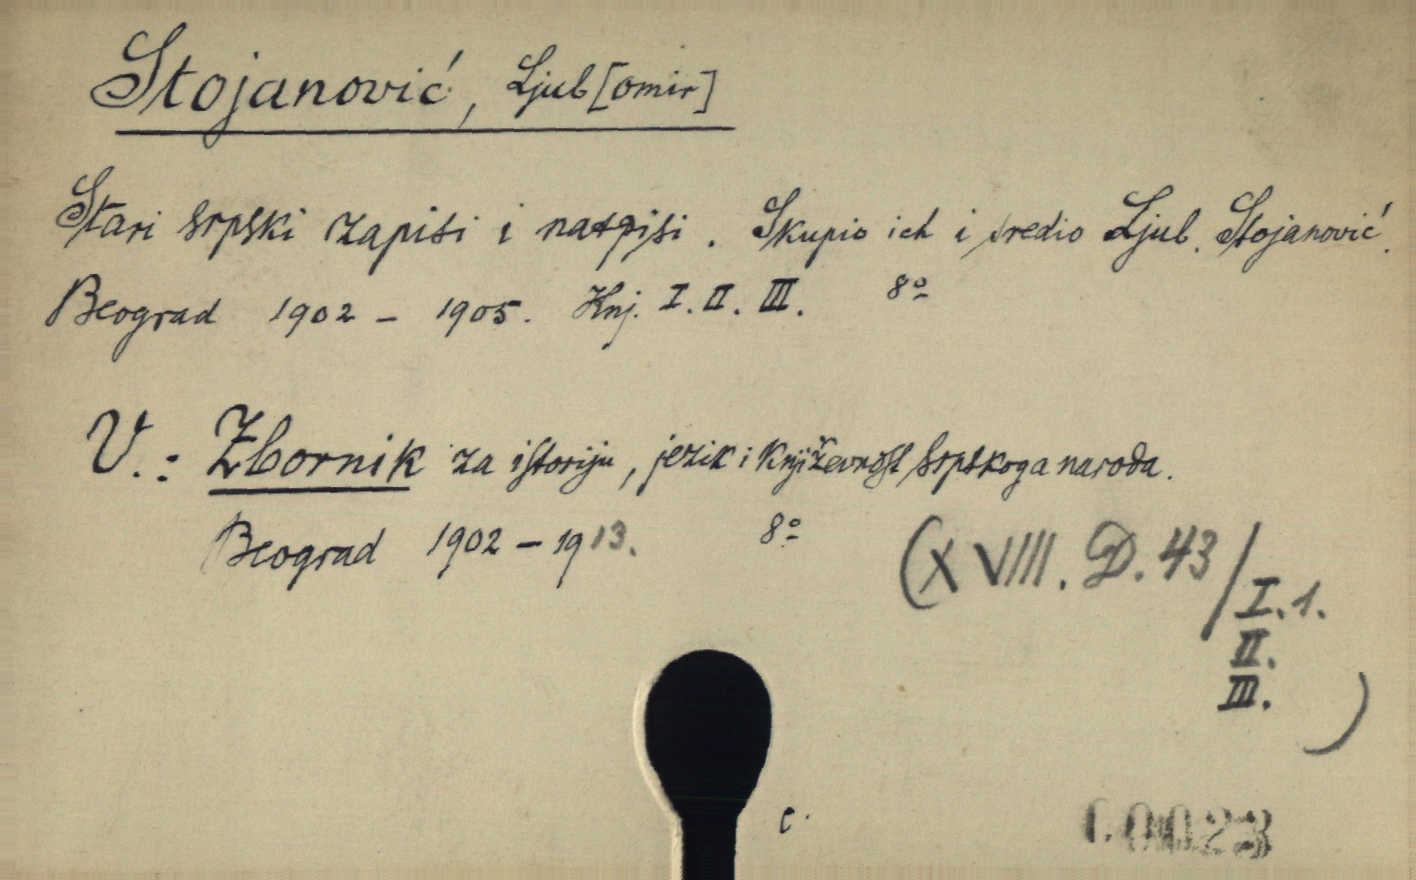 Stojanović, Ljub[omir]
Stari srpski zapisi i natpisi. Skupio ich i sredio Ljub. Stojanović.
Beograd 1902 – 1905. Knj. I. II. III. 8º
V.: Zbornik za istoriju, jezik i književnost srpskoga naroda.
Beograd 1902 – 1913. 8º
(XVIII. D. 43/I. 1.
II.
III. )
c.